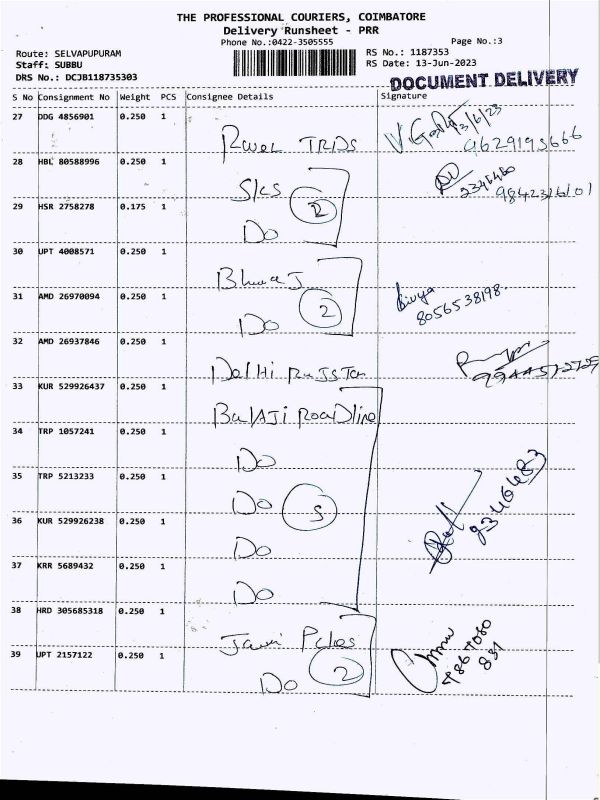 THE PROFESSIONAL COURIERS, COIMBATORE
Delivery Runsheet - PRR
Phone No.:0422-3505555
Page No.:3
Route: SELVAPUPURAM
Staff: SUBBU
DRS No.: DCJB118735303
RS No.: 1187353
RS Date: 13-Jun-2023
DOCUMENT DELIVERY
S No Consignment No Weight PCS Consignee Details Signature
27 DDG 4856901 0.250 1
TRDS
13/6/23
9629195666
28 HBL 80588996 0.250 1
SKS
2
9842316101
29 HSR 2758278 0.175 1
Do
30 UPT 4008571 0.250 1
31 AMD 26970094 0.250 1
Do
2
8056538198.
32 AMD 26937846 0.250 1
Delhi
33 KUR 529926437 0.250 1
BalAJi RoadLine
34 TRP 1057241 0.250 1
Do
35 TRP 5213233 0.250 1
Do
5
36 KUR 529926238 0.250 1
Do
37 KRR 5689432 0.250 1
Do
38 HRD 305685318 0.250 1
39 UPT 2157122 0.250 1
Do
2